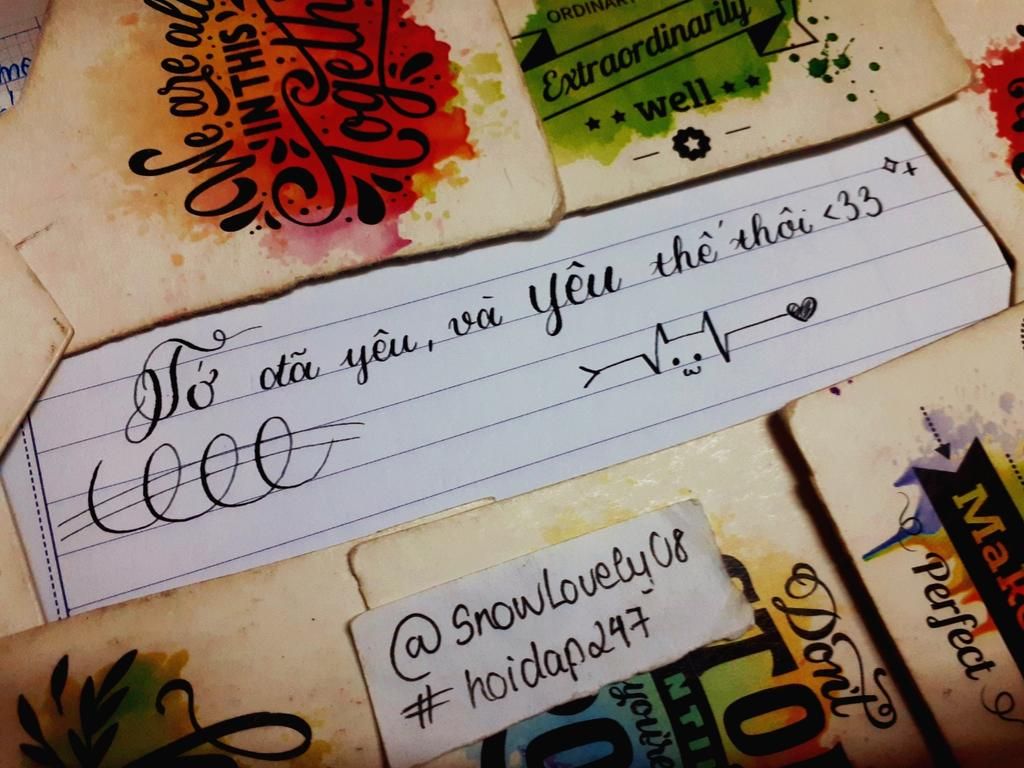 We are all
IN THIS
Together
ORDINARY
Extraordinarily
well
Tớ đã yêu, và yêu thế thôi <33
@SnowLovely08
#hoidap247
Don't
STO
you're
Make
Perfect